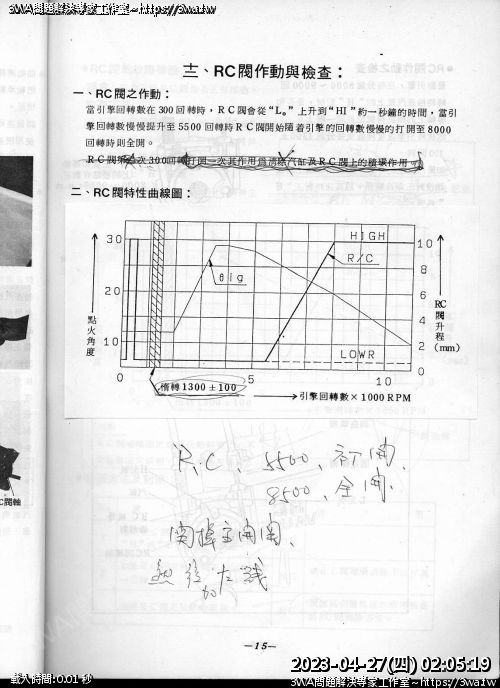 3WA問題解決專家工作室~https://3wa.tw
3WA問題解決專家工作室~https://3wa.tw
三、RC閥作動與檢查：
一、RC閥之作動：
當引擎回轉數在300回轉時，RC閥會從“L。”上升到“HI”約一秒鐘的時間，當引
擎回轉數慢慢提升至5500回轉時RC閥開始隨着引擎的回轉數慢慢的打開至8000
回轉時則全開。
RC閥第 次300回轉打開一次其作用為清除汽缸及RC閥上的積碳作用。
二、RC閥特性曲線圖：
HIGH
R/C
θig
LOWR
30
20
10
點火角度
10
8
6
4
2
0
RC閥升程(mm)
0
5
10
惰轉1300±100
引擎回轉數×1000RPM
R.C、5500、初開、
8500、全開、
関掉主開関、
C閥軸
－15－
2023-04-27(四) 02:05:19
載入時間:0.01 秒
3WA問題解決專家工作室~https://3wa.tw